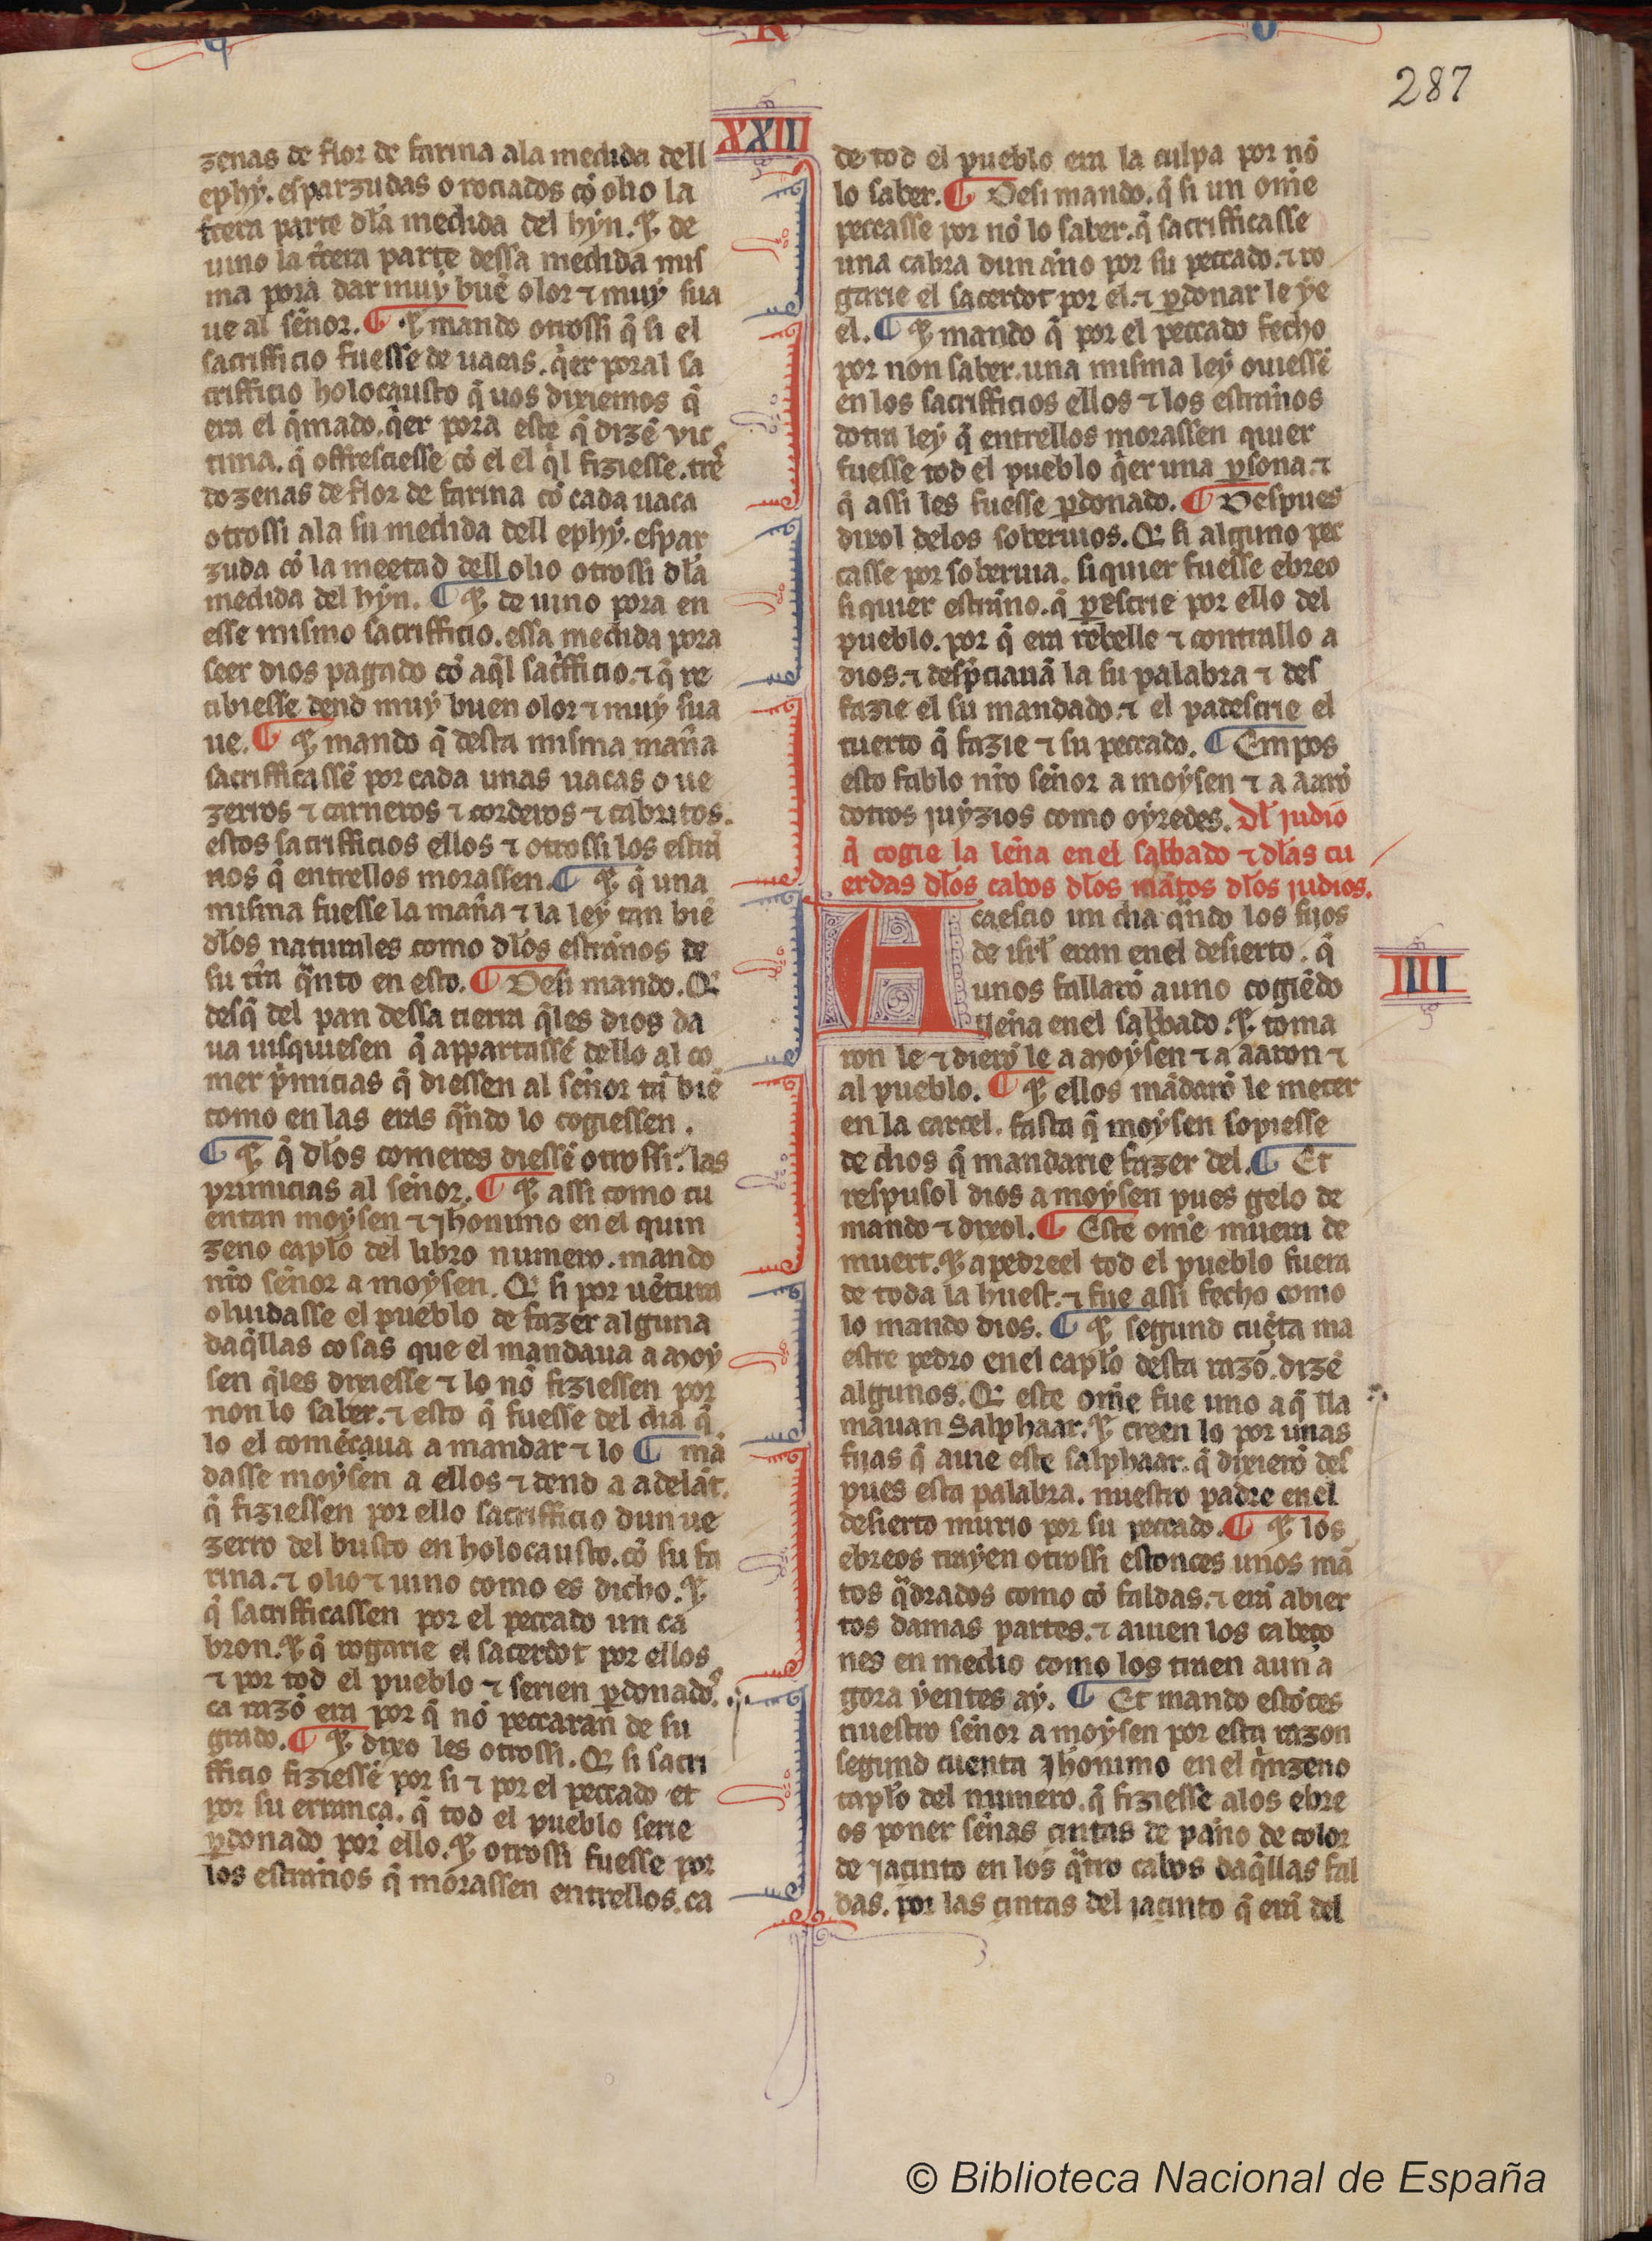 R O
287
XXIII
zenas de flor de farina ala medida dell
ephẏ. esparzudas o rociados cõ olio la
t̃cera parte dl̃a medida del hẏn. ⁊ de
uino la t̃cera parte dessa medida mis
ma pora dar muẏ buẽ olor ⁊ muẏ sua
ue al señor. ¶ ⁊ mando otrossi q̃ si el
sacrifficio fuesse de uacas. q̃er poral sa
crifficio holocausto q̃ uos dixiemos q̃
era el q̃mado. q̃er pora este q̃ dizẽ vic
tima. q̃ offresciesse cõ el el q̃l fiziesse. tre
dozenas de flor de farina cõ cada uaca
otrossi ala su medida dell ephẏ. espar
zuda cõ la meetad dell olio otrossi dl̃a
medida del hẏn. ¶ ⁊ de uino pora en
esse mismo sacrifficio. essa medida pora
seer dios pagado cõ aq̃l sac̃fficio. ⁊ q̃ re
cibiesse dend muẏ buen olor ⁊ muẏ sua
ue. ¶ ⁊ mando q̃ desta misma maña
sacrifficassẽ por cada unas uacas o ue
zerros ⁊ carneros ⁊ corderos ⁊ cabritos.
estos sacrifficios ellos ⁊ otrossi los estra
nos q̃ entrellos morassen. ¶ ⁊ q̃ una
misma fuesse la maña ⁊ la leẏ tan biẽ
dl̃os naturales como dl̃os estraños de
su tr̃ra q̃nto en esto. ¶ Desi mando. Q̃
desq̃ del pan dessa tierra q̃les dios da
ua uisquiesen q̃ appartassẽ dello al co
mer p̃micias q̃ diessen al señor tã biẽ
como en las eras q̃ndo lo cogiessen.
¶ ⁊ q̃ dl̃os comeres diessẽ otrossi las
primicias al señor. ¶ ⁊ assi como cu
entan moẏsen ⁊ Jheronimo en el quin
zeno capl̃o del libro numero. mando
nr̃o señor a moẏsen. Q̃ si por uẽtura
oluidasse el pueblo de fazer alguna
daq̃llas cosas que el mandaua a moẏ
sen q̃les dixiesse ⁊ lo nõ fiziessen por
non lo saber. ⁊ esto q̃ fuesse del dia q̃
lo el comẽçaua a mandar ⁊ lo ¶ mã
dasse moẏsen a ellos ⁊ dend a adelãt.
q̃ fiziessen por ello sacrifficio dun ue
zerro del busto en holocausto. cõ su fa
rina. ⁊ olio ⁊ uino como es dicho. ⁊
q̃ sacrifficassen por el peccado un ca
bron. ⁊ q̃ rogarie el sacerdot por ellos
⁊ por tod el pueblo ⁊ serien p̱donados.
ca razõ era por q̃ nõ peccaran de su
grado. ¶ ⁊ dixo les otrossi. Q̃ si sacri
fficio fiziessẽ por si ⁊ por el peccado et
por su errança. q̃ tod el pueblo serie
p̱donado por ello. ⁊ otrossi fuesse por
los estraños q̃ morassen entrellos. ca
de tod el pueblo era la culpa por nõ
lo saber. ¶ Desi mando. q̃ si un om̃e
peccasse por nõ lo saber. q̃ sacrifficasse
una cabra dun año por su peccado. ⁊ ro
garie el sacerdot por el. ⁊ p̱donar le ẏe
el. ¶ ⁊ mando q̃ por el peccado fecho
por non saber. una misma leẏ ouiessẽ
en los sacrifficios ellos ⁊ los estraños
dotra leẏ q̃ entrellos morassen quier
fuesse tod el pueblo q̃er una p̱sona. ⁊
q̃ assi les fuesse p̱donado. ¶ Despues
dixol delos soberuios. Q̃ si alguno pec
casse por soberuia. siquier fuesse ebreo
si quier estraño. q̃ p̱escrie por ello del
pueblo. por q̃ era rebelle ⁊ contrallo a
dios. ⁊ desp̃ciauã la su palabra ⁊ des
fazie el su mandado. ⁊ el padescrie el
tuerto q̃ fazie ⁊ su peccado. ¶ Empos
esto fablo nr̃o señor a moẏsen ⁊ a aarõ
dotros juẏzios como oẏredes. Dl̃ judio
q̃ cogie la leña en el sabbado ⁊ dl̃as cu
erdas dl̃os cabos dl̃os mãtos dl̃os judios.
IIII
Acaescio un dia q̃ndo los fijos
de isrl̃ eran en el desierto. q̃
unos fallarõ auno cogiẽdo
leña en el sabbado. ⁊ toma
ron le ⁊ dierõ le a moẏsen ⁊ a aaron ⁊
al pueblo. ¶ ⁊ ellos mãdarõ le meter
en la carcel. fasta q̃ moẏsen sopiesse
de dios q̃ mandarie fazer del. ¶ Et
respusol dios a moẏsen pues gelo de
mando ⁊ dixol. ¶ Este om̃e muera de
muert. ⁊ apedreel tod el pueblo fuera
de toda la huest. ⁊ fue assi fecho como
lo mando dios. ¶ ⁊ segund cuẽta ma
estre pedro en el capl̃o desta razõ. dizẽ
algunos. Q̃ este om̃e fue uno a q̃ lla
mauan Salphaar. ⁊ creen lo por unas
fijas q̃ auie este salphaar. q̃ dixierõ des
pues esta palabra. nuestro padre en el
desierto murio por su peccado. ¶ ⁊ los
ebreos traẏen otrossi estonces unos mã
tos q̃drados como cõ faldas. ⁊ erã abier
tos damas partes. ⁊ auien los cabeço
nes en medio como los traen aun a
gora ẏentes aẏ. ¶ Et mando estõces
nuestro señor a moẏsen por esta razon
segund cuenta Jheronimo en el q̃nzeno
capl̃o del numero. q̃ fiziesse alos ebre
os poner señas cintas de paño de color
de jacinto en los q̃tro cabos daq̃llas fal
das. por las cintas del jacinto q̃ erã del
© Biblioteca Nacional de España